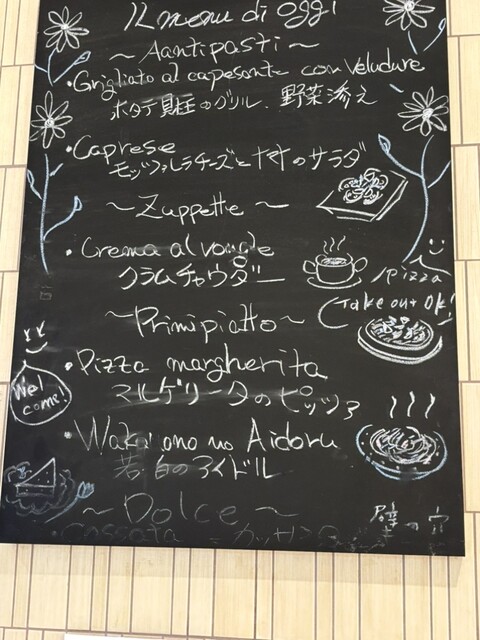 Il menu di oggi
~Aantipasti~
・Grigliato al capesante con Veludure
ホタテ貝柱のグリル、野菜添え
・Caprese
モッツァレラチーズとトマトのサラダ
~Zuppette~
・Crema al vongle
クラムチャウダー
pizza
Take out OK!
~Primipiatto~
・Pizza margherita
マルゲリータのピッツァ
Wel
come!
・Wakai ono no Aidoru
~Dolce~
・Cassata